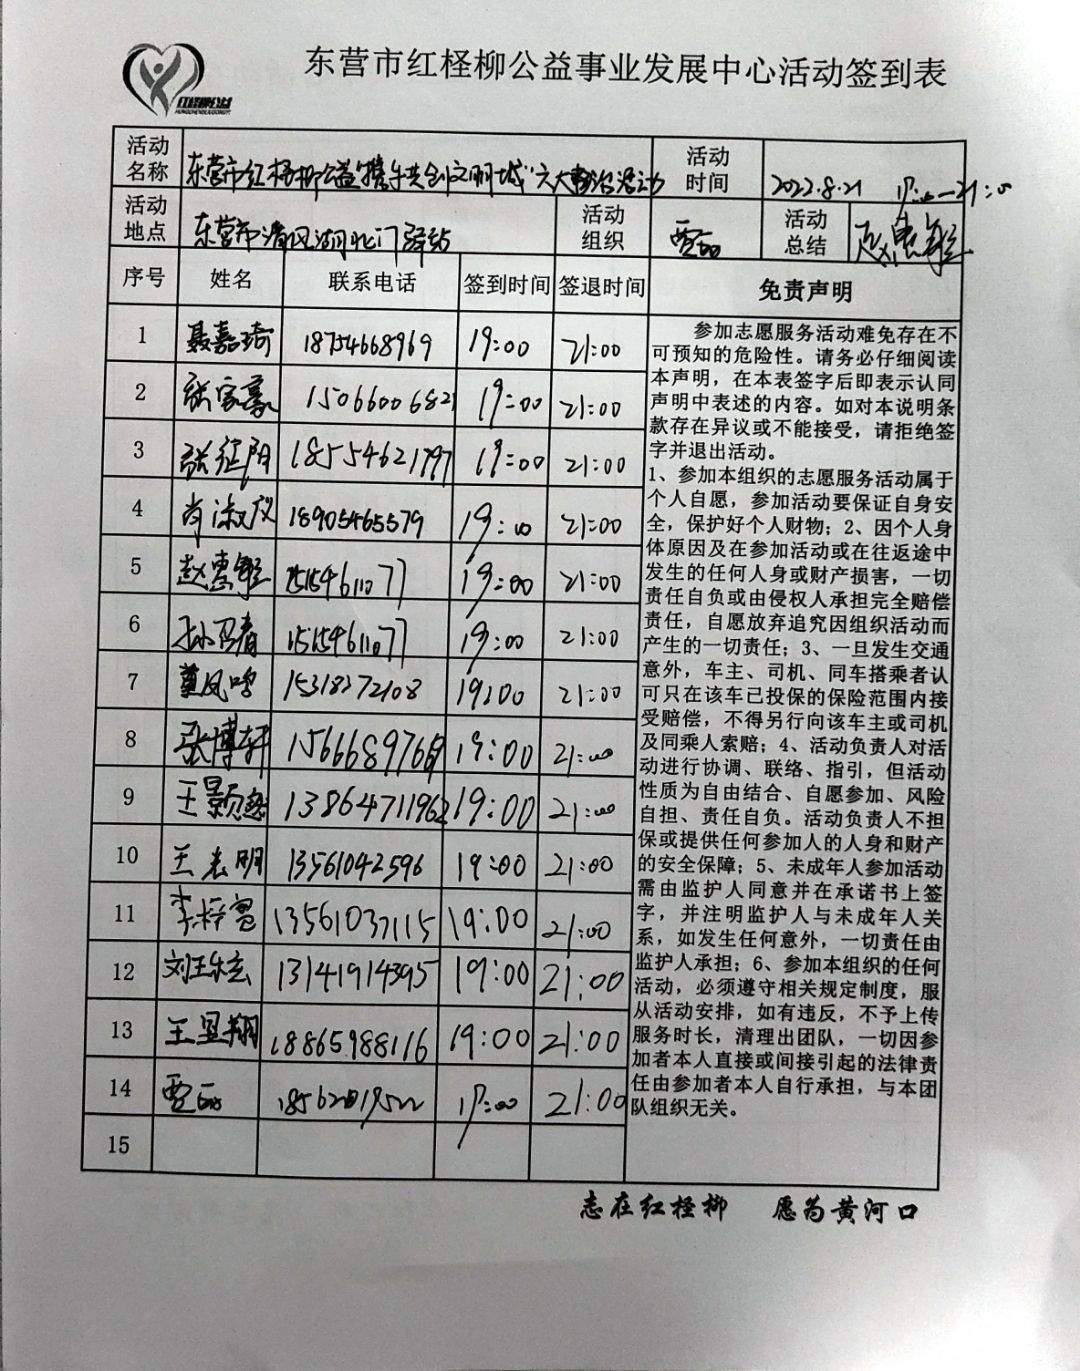 东营市红柽柳公益事业发展中心活动签到表
红柽柳公益
活动名称 东营市红柽柳公益"携手共创文明城"六大整治活动 活动时间 2022.8.21 19:00—21:00
活动地点 东营市清风湖北门驿站 活动组织 贾丽 活动总结 赵惠
序号 姓名 联系电话 签到时间 签退时间 免责声明
1 聂嘉琦 18754668969 19:00 21:00
2 张家豪 15066006821 19:00 21:00
3 张征阳 18554621797 19:00 21:00
4 肖淑 18905465579 19:00 21:00
5 赵惠 15154611077 19:00 21:00
6 孙 15154611077 19:00 21:00
7 董凤鸣 15318272108 19:00 21:00
8 张博轩 1566689766 19:00 21:00
9 王景 13864711962 19:00 21:00
10 王志明 13561042596 19:00 21:00
11 李梓 13561037115 19:00 21:00
12 刘王乐 13141914395 19:00 21:00
13 王显翔 18865988116 19:00 21:00
14 贾丽 19:00 21:00
15
参加志愿服务活动难免存在不
可预知的危险性。请务必仔细阅读
本声明，在本表签字后即表示认同
声明中表述的内容。如对本说明条
款存在异议或不能接受，请拒绝签
字并退出活动。
1、参加本组织的志愿服务活动属于
个人自愿，参加活动要保证自身安
全，保护好个人财物；2、因个人身
体原因及在参加活动或在往返途中
发生的任何人身或财产损害，一切
责任自负或由侵权人承担完全赔偿
责任，自愿放弃追究因组织活动而
产生的一切责任；3、一旦发生交通
意外，车主、司机、同车搭乘者认
可只在该车已投保的保险范围内接
受赔偿，不得另行向该车主或司机
及同乘人索赔；4、活动负责人对活
动进行协调、联络、指引，但活动
性质为自由结合、自愿参加、风险
自担、责任自负。活动负责人不担
保或提供任何参加人的人身和财产
的安全保障；5、未成年人参加活动
需由监护人同意并在承诺书上签
字，并注明监护人与未成年人关
系，如发生任何意外，一切责任由
监护人承担；6、参加本组织的任何
活动，必须遵守相关规定制度，服
从活动安排，如有违反，不予上传
服务时长，清理出团队，一切因参
加者本人直接或间接引起的法律责
任由参加者本人自行承担，与本团
队组织无关。
志在红柽柳 愿为黄河口